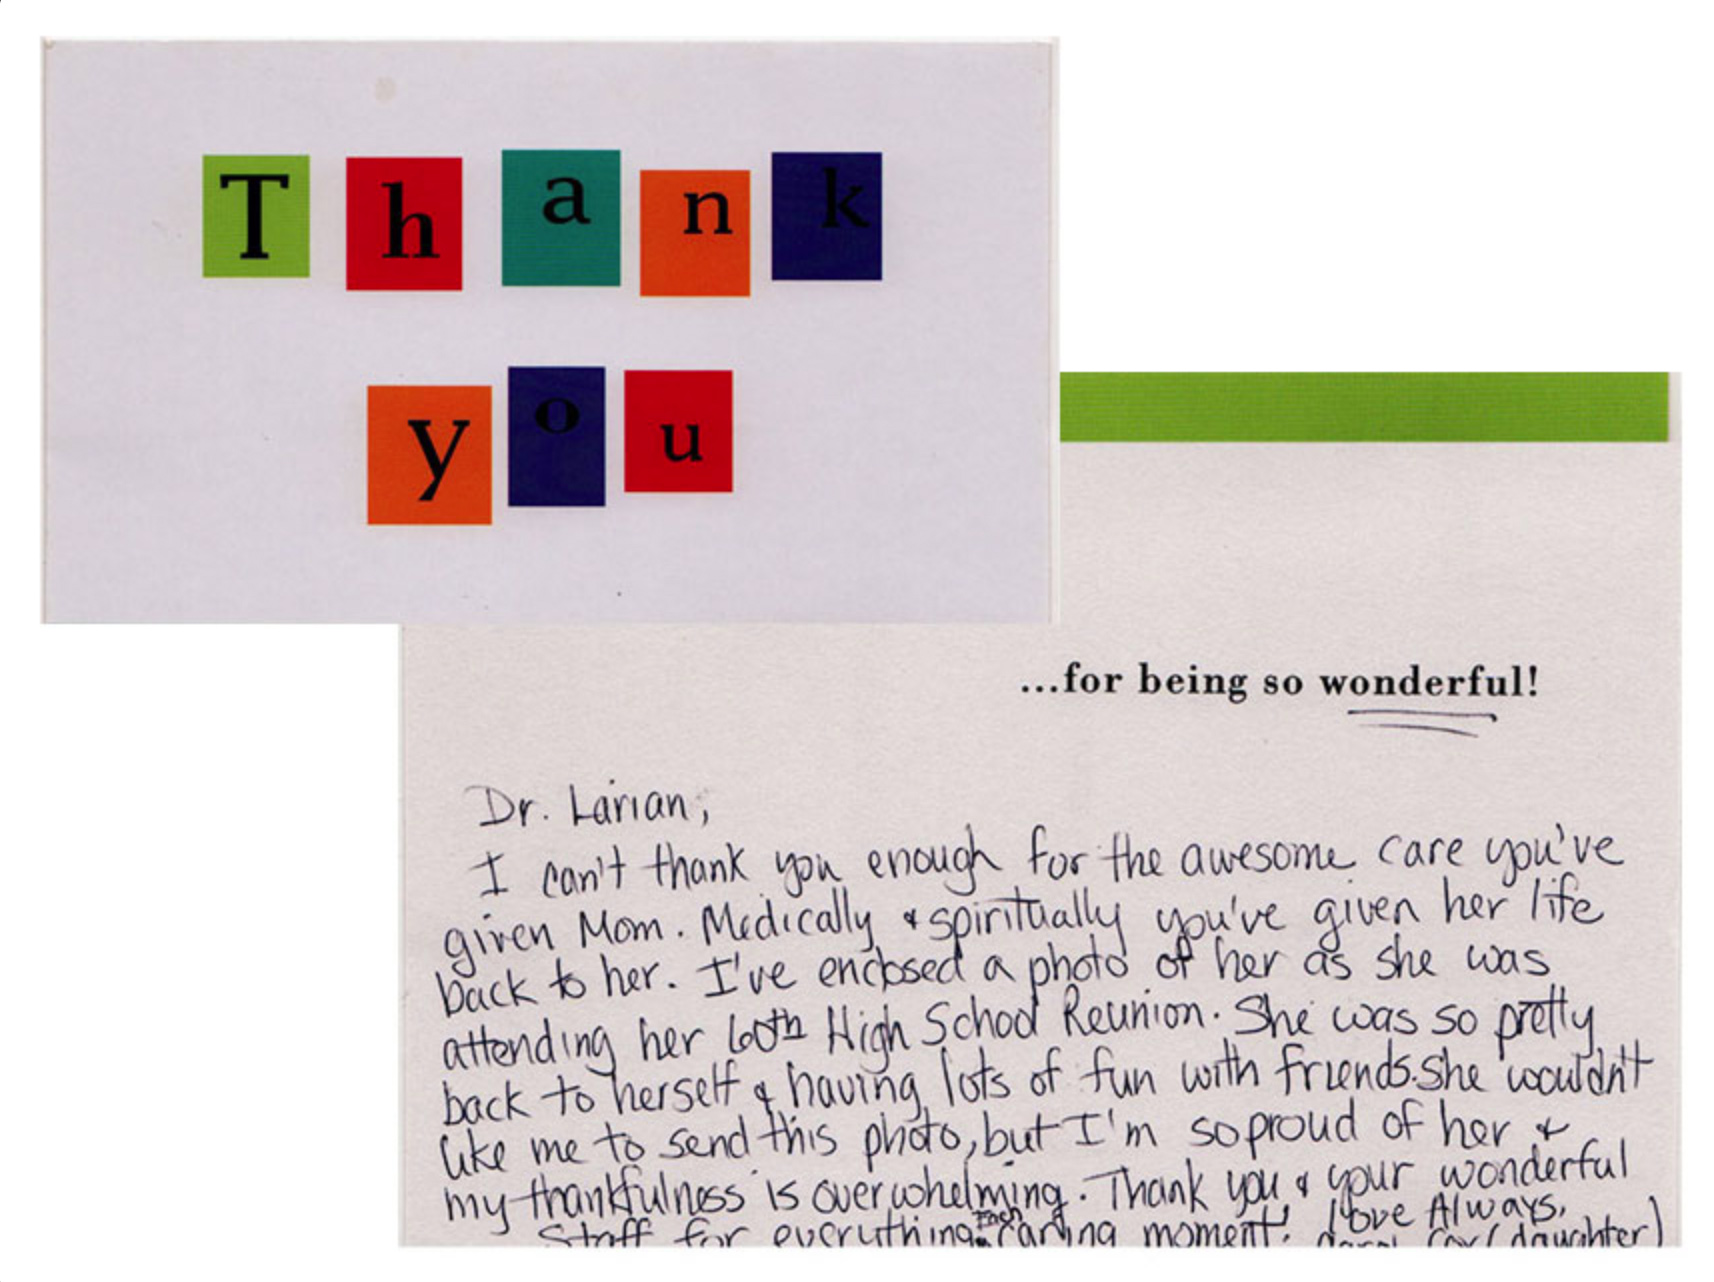 Thank
you
...for being so wonderful!
Dr. Larian,
I can't thank you enough for the awesome care you've
given Mom. Medically & spiritually you've given her life
back to her. I've enclosed a photo of her as she was
attending her 60th High School Reunion. She was so pretty
back to herself & having lots of fun with friends. She wouldn't
like me to send this photo, but I'm so proud of her &
my thankfulness is overwhelming. Thank you & your wonderful
Staff for everything. Each caring moment! Love Always,
(daughter)